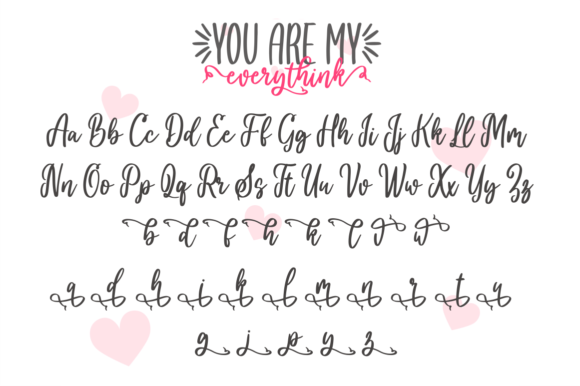 YOU ARE MY
everythink
Aa Bb Cc Dd Ee Ff Gg Hh Ii Jj Kk Ll Mm
Nn Oo Pp Qq Rr Ss Tt Uu Vv Ww Xx Yy Zz
b d f h k l
a d h i k l m n r t u
g j p y z